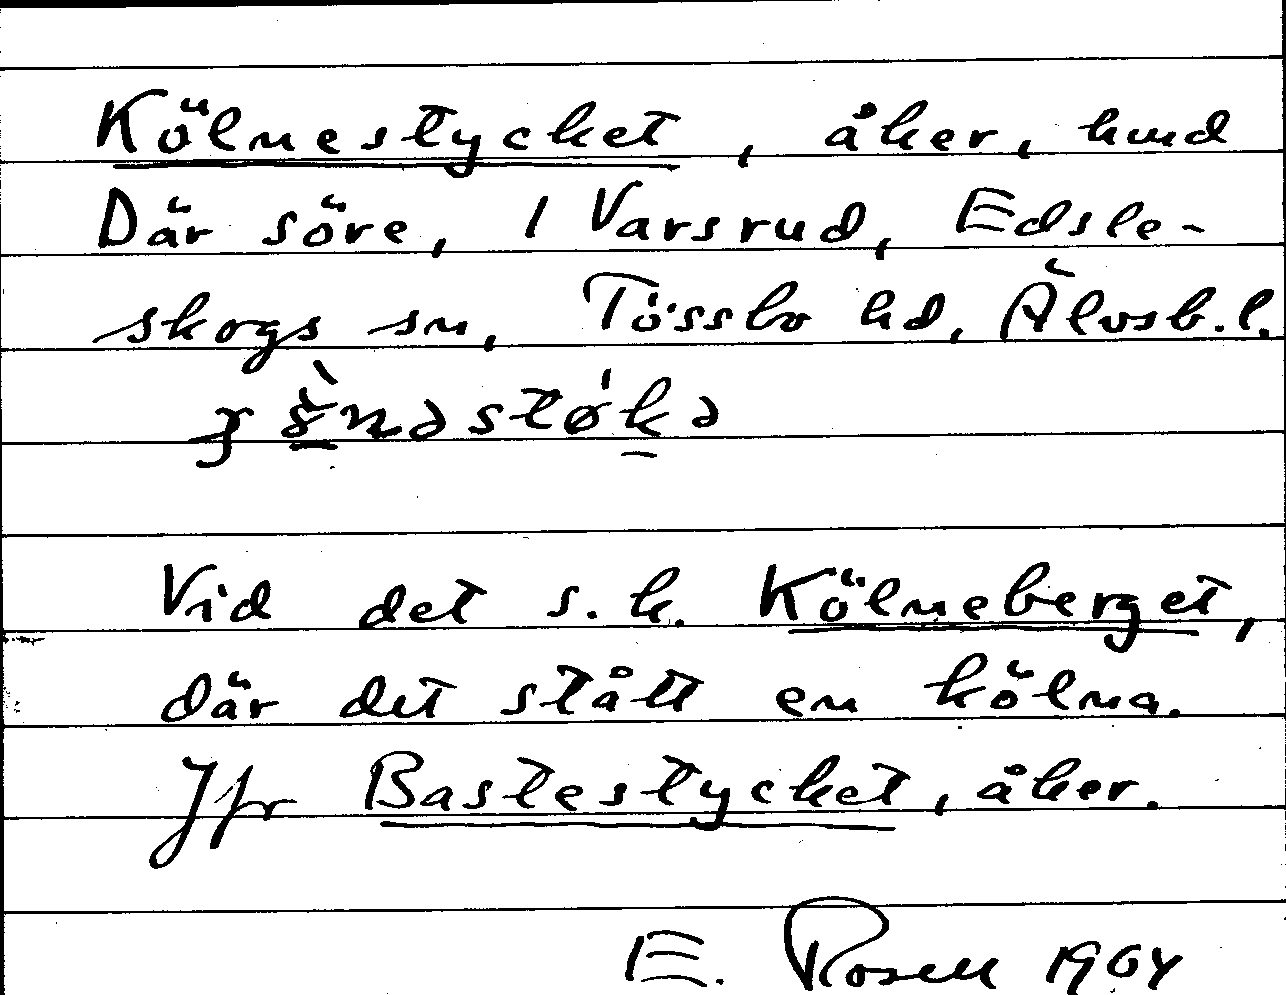 Kölnestycket, åker, hmd
Där söre, 1 Varsrud, Edsle-
skogs sn, Tössbo hd, Älvsb. l.
Vid det s. k. Kölneberget,
där det stått en kölna.
Jfr Bastestycket, åker.
E. Rosell 1964